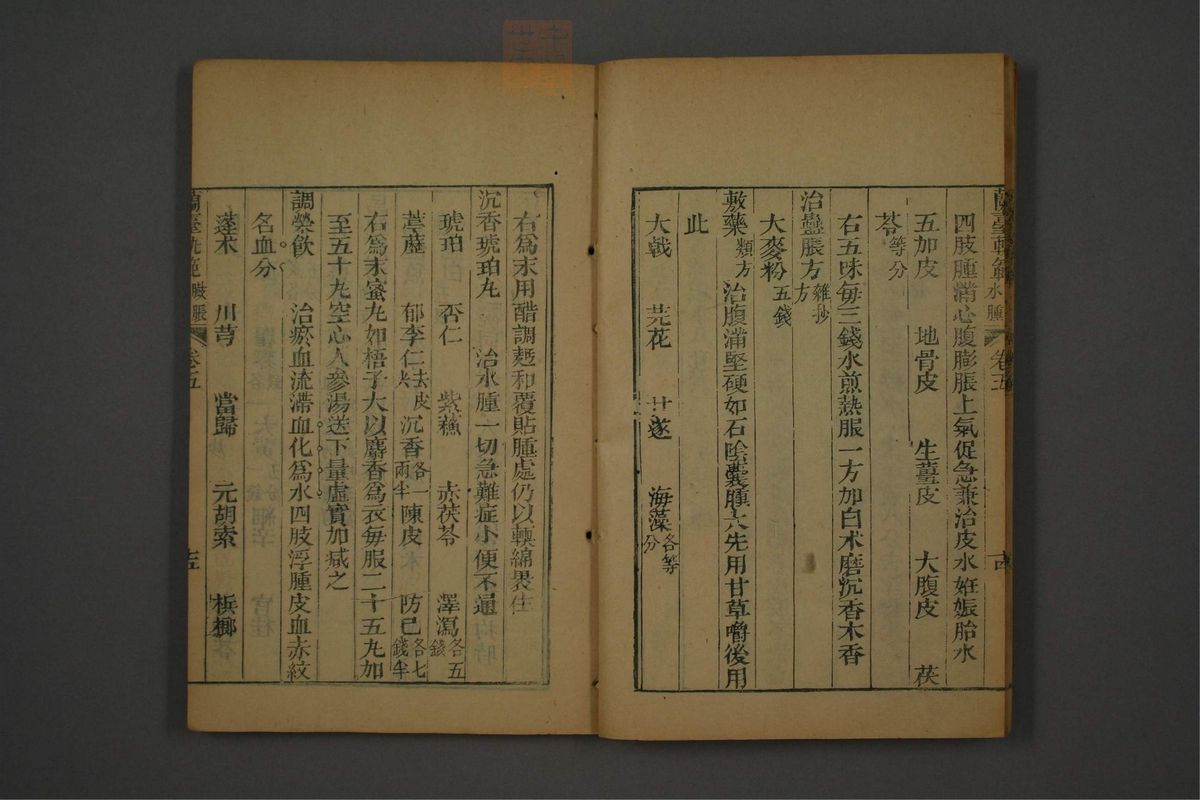 蘭臺軌範水腫　卷五　十四
四肢腫滿心腹膨脹上氣促急兼治皮水姙娠胎水
五加皮　地骨皮　生薑皮　大腹皮　茯
苓等分
右五味每三錢水煎熱服一方加白术磨沉香木香
治蠱脹方雜抄方
大麥粉五錢
敷藥類方　治腹滿堅硬如石陰囊腫大先用甘草嚼後用
此
大戟　芫花　甘遂　海藻各等分
右爲末用醋調麪和覆貼腫處仍以輭綿裹住
沉香琥珀丸　治水腫一切急難症小便不通
琥珀　杏仁　紫蘇　赤茯苓　澤瀉各五錢
葶藶　郁李仁去皮尖　沉香各一兩半　陳皮　防己各七錢半
右爲末蜜丸如梧子大以麝香爲衣每服二十五丸加
至五十丸空心人參湯送下量虛實加減之
調榮飲　治瘀血流滯血化爲水四肢浮腫皮血赤紋
名血分
蓬术　川芎　當歸　元胡索　檳榔
蘭臺軌範　脹　卷五　十五